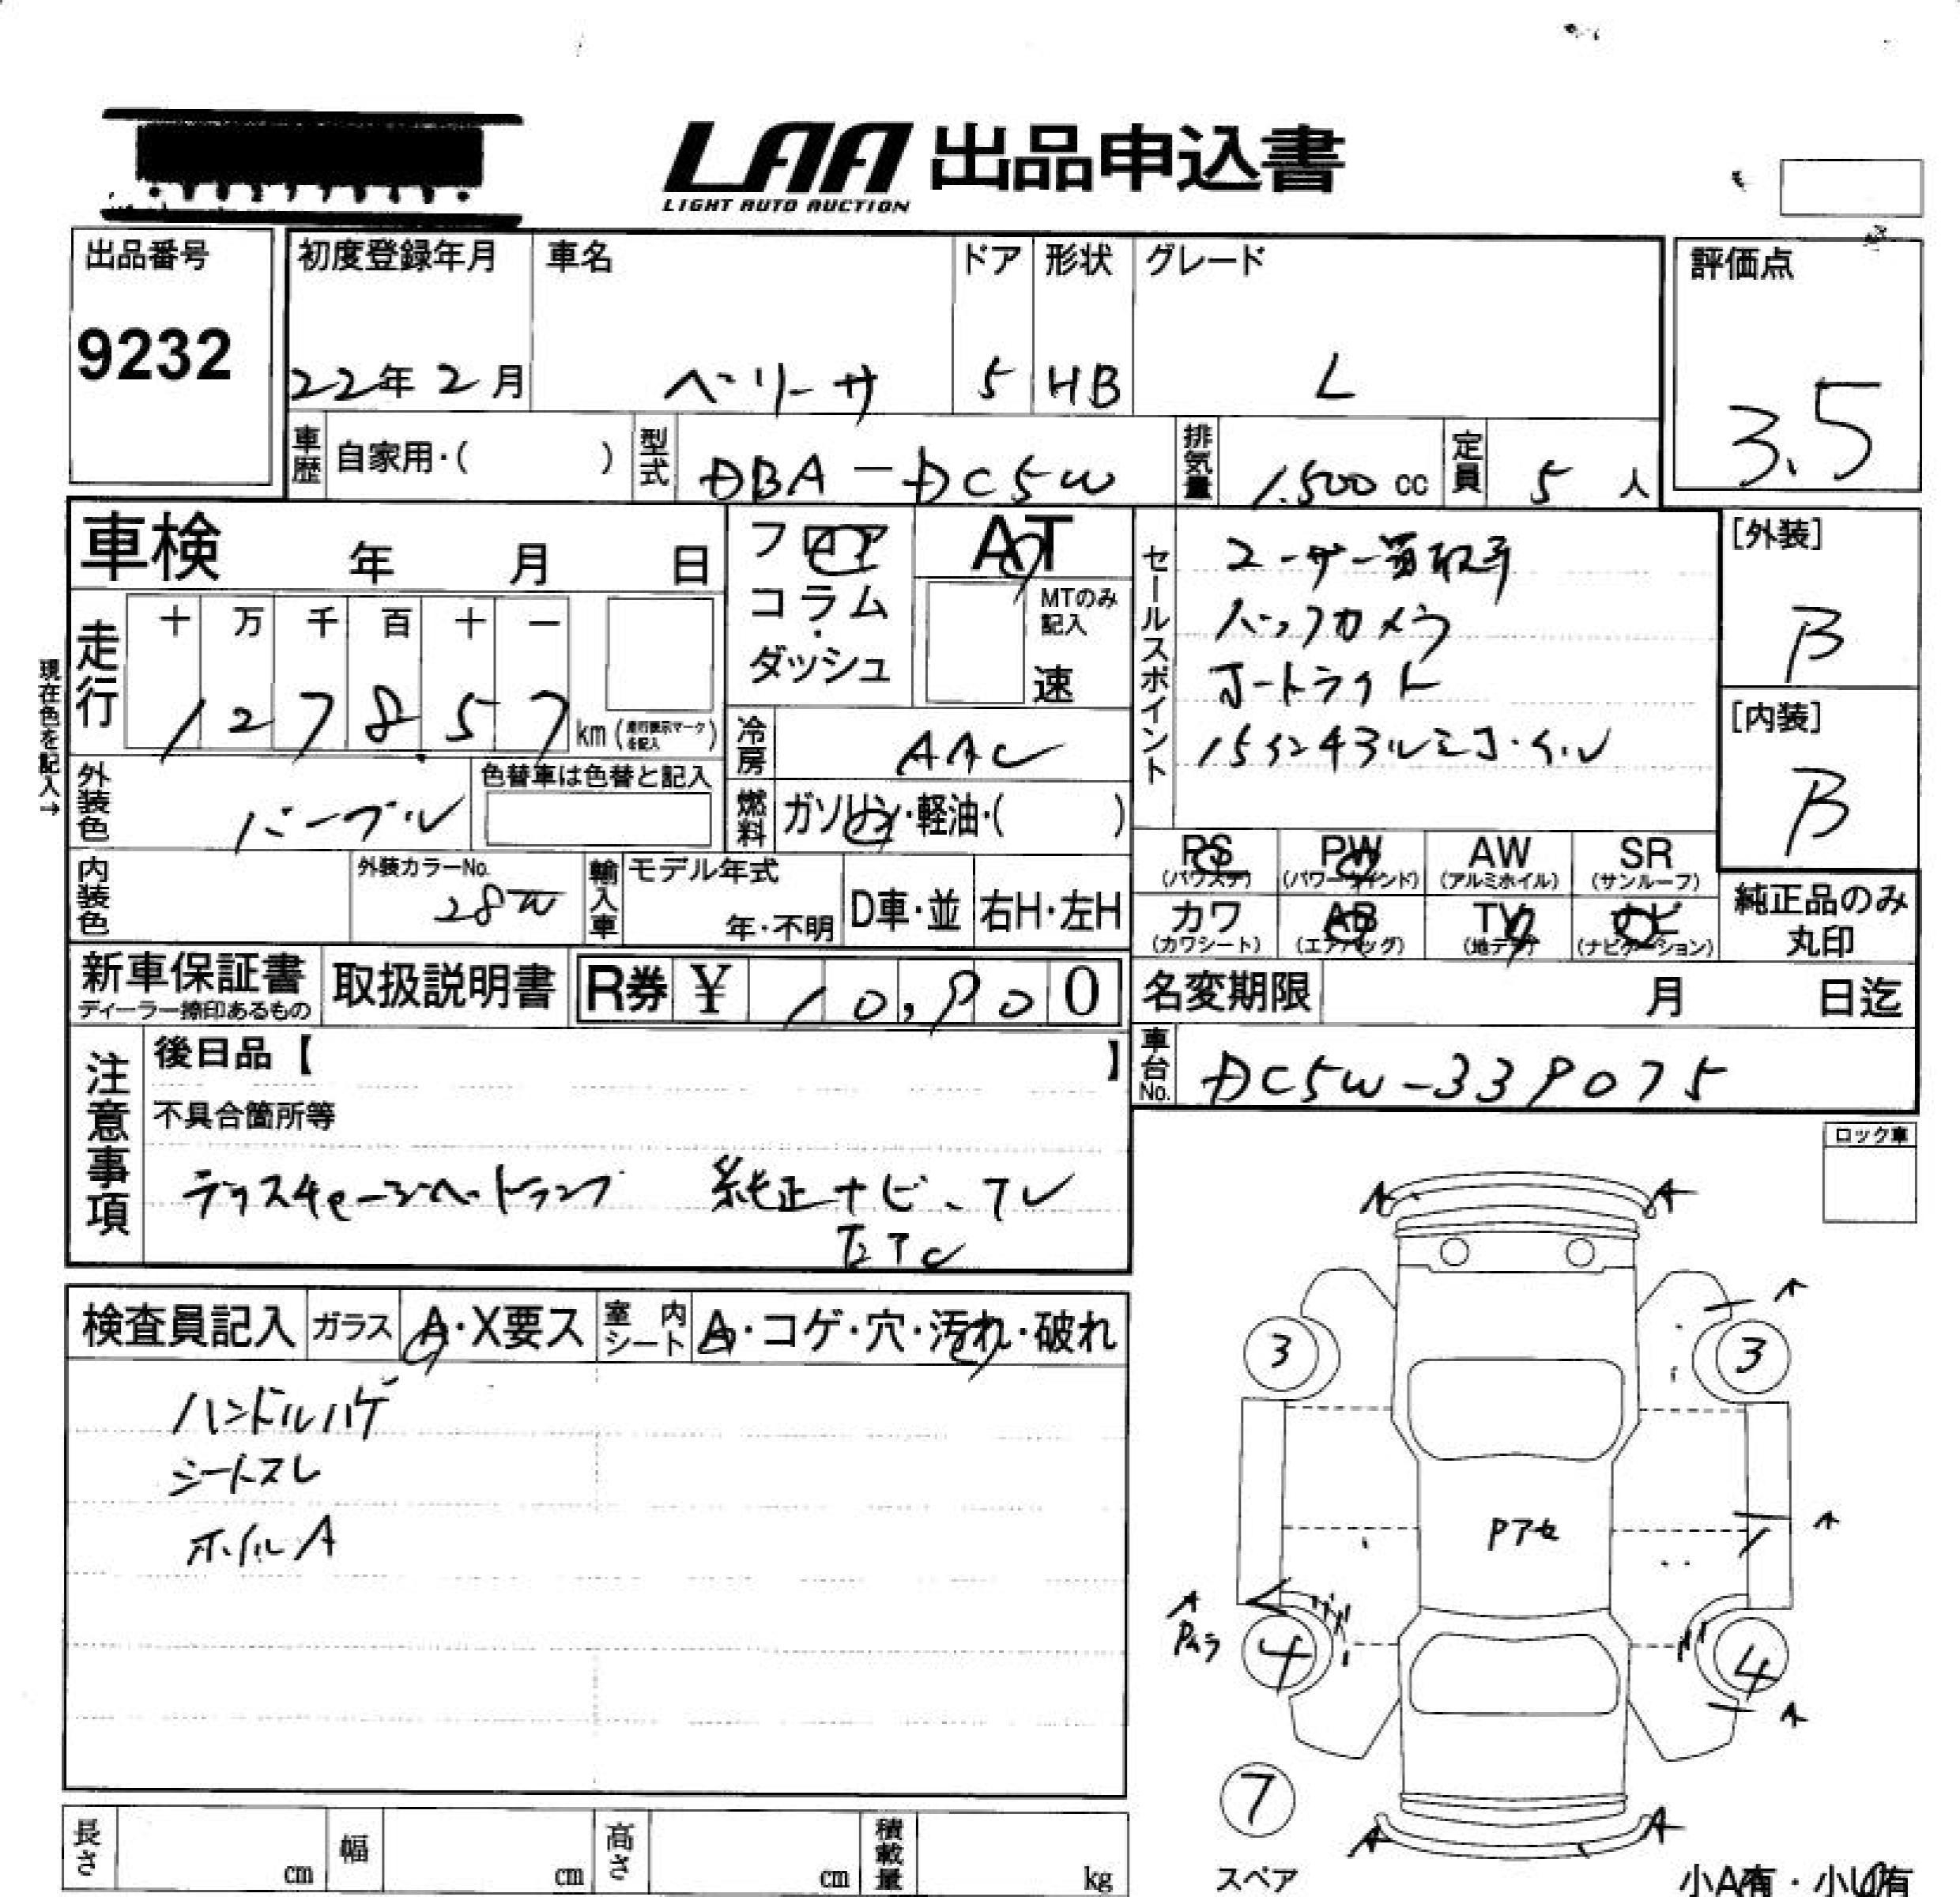 LAA 出品申込書
LIGHT AUTO AUCTION
出品番号
9232
初度登録年月
22年 2月
車名
ベリーサ
ドア
5
形状
HB
グレード
L
評価点
3.5
車歴
自家用・( )
型式
DBA-DC5W
排気量
1.500 cc
定員
5 人
車検 年 月 日
フロア
コラム
・
ダッシュ
AT
MTのみ
記入
速
セールスポイント
ユーザー買取車
バックカメラ
オートライト
[外装]
B
[内装]
B
現在色を記入→
走行
十 万 千 百 十 一
1 2 7 8. 5 7 km
冷房
AAC
外装色
パープル
色替車は色替と記入
燃料
ガソリン・軽油・( )
PS
(パワステ)
PW
(パワーウインド)
AW
(アルミホイル)
SR
(サンルーフ)
カワ
(カワシート)
AB
(エアバッグ)
TV
(地デジ)
ナビ
(ナビゲーション)
純正品のみ
丸印
内装色
外装カラーNo.
28W
輸入車
モデル年式
年・不明
D車・並
右H・左H
新車保証書
ディーラー捺印あるもの
取扱説明書
R券 ¥ 10,900
名変期限 月 日迄
車台No.
DC5W-339075
注意事項
後日品【 】
不具合箇所等
デスチャージヘッドランプ 純正ナビ、TV
ETC
ロック車
検査員記入
ガラス
A・X要ス
室内シート
A・コゲ・穴・汚れ・破れ
ハンドルハゲ
シートスレ
ホイルA
A A
A
3 3
Pアセ
A
A
4 4
A
7
スペア
A A
小A有・小U有
長さ cm
幅 cm
高さ cm
積載量 kg